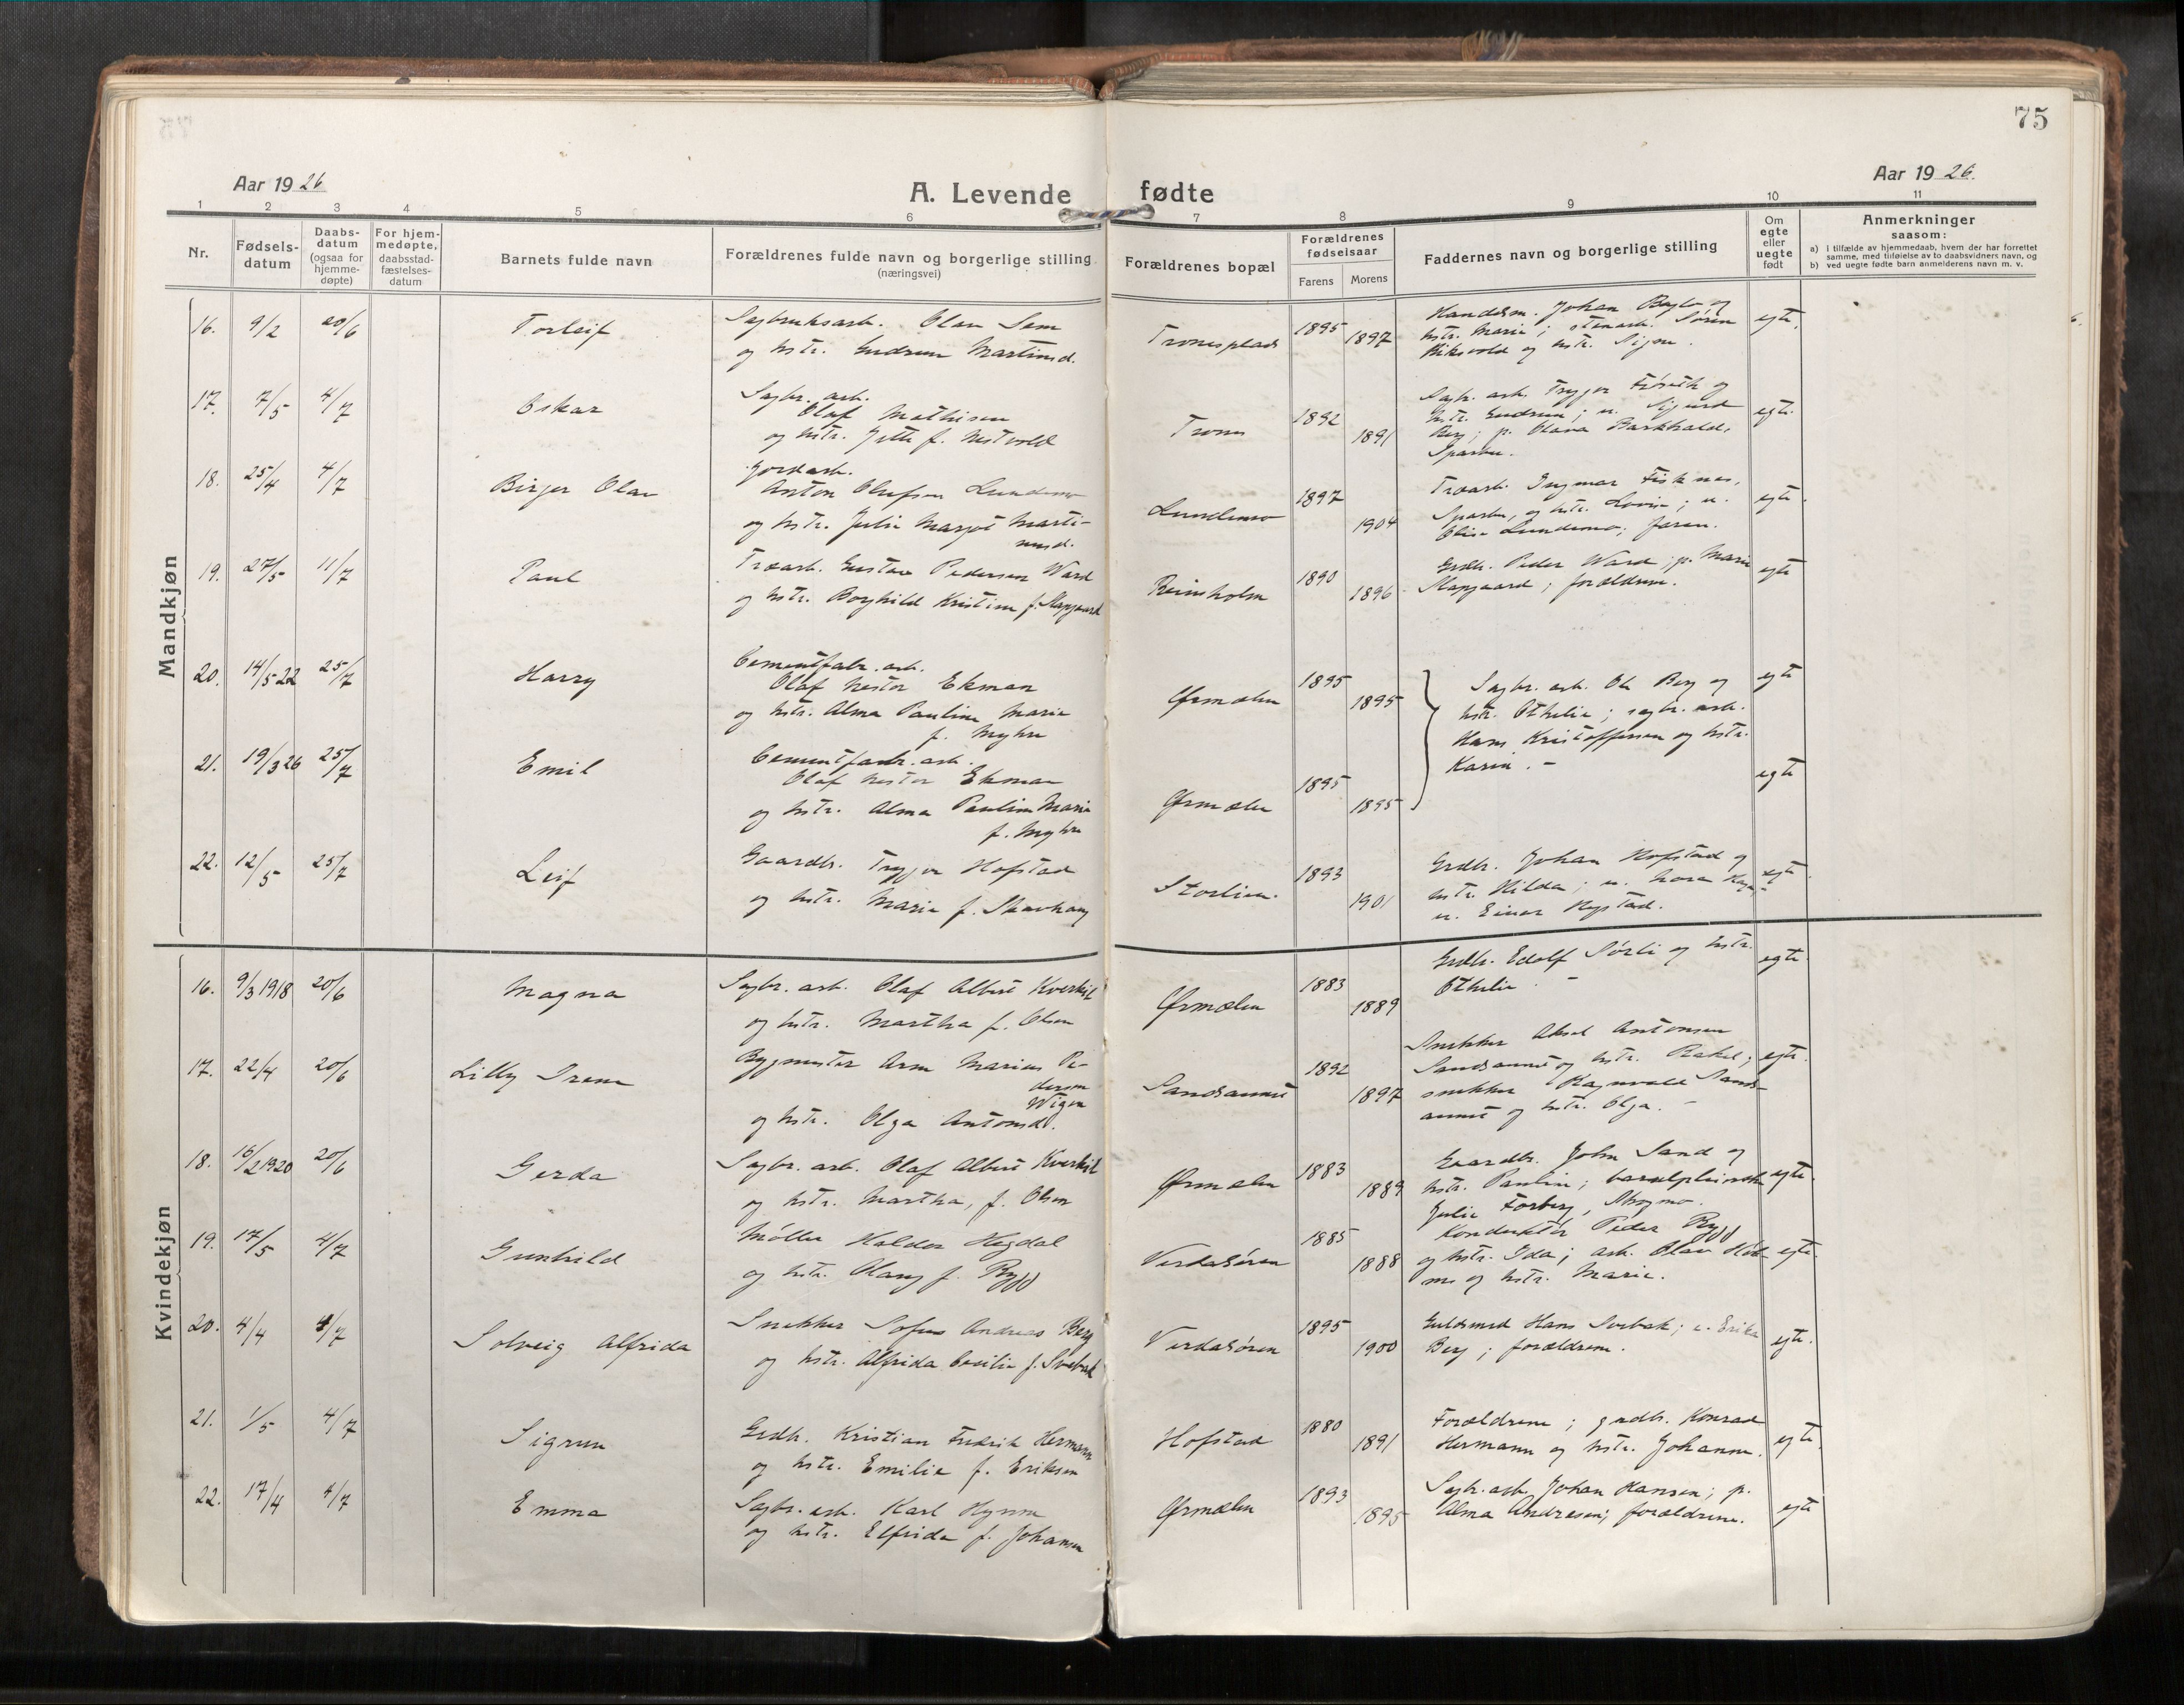 75
Aar 1926
A. Levende fødte
Aar 1926.
1 2 3 4 5 6 7 8 9 10 11
Nr.
Fødsels-
datum
Daabs-
datum
(ogsaa for
hjemme-
døpte)
For hjem-
medøpte,
daabsstad-
fæstelses-
datum
Barnets fulde navn
Forældrenes fulde navn og borgerlige stilling
(næringsvei)
Forældrenes bopæl
Forældrenes
fødselsaar
Farens Morens
Faddernes navn og borgerlige stilling
Om
egte
eller
uegte
født
Anmerkninger
saasom:
a) i tilfælde av hjemmedaab, hvem der har forrettet
samme, med tilføielse av to daabsvidners navn, og
b) ved uegte fødte barn anmelderens navn m. v.
Mandkjøn
16. 9/2 20/6 Torleif
Sagbruksarb. Olav Sem
og hstr. Gudrun Martinsd.
Tronesplads 1895 1897
Handelsm. Johan
hstr. Marie; stenarb. Søren
og hstr. Signe.
egte.
17. 7/5 4/7 Oskar
Sagbr. arb.
Olaf Mathisen
og hstr. Jette f. Nestvold
Trones 1892 1891
Sagbr. arb. Trygve
hstr. Gudrun; u. Sigurd
Berg; p. Olava Barkhald,
Sparbu.
egte.
18. 25/4 4/7 Birger Olav
Jordarb.
Anton Olufsen Lundemo
og hstr. Julie Margot Marti-
nusd.
Lundemo 1897 1904
Træarb. Ingmar Fisknes,
Sparbu, og hstr. Lovise; u.
Olise Lundemo; faren.
egte.
19. 27/5 11/7 Paul
Træarb. Gustav Pedersen Ward
og hstr. Borghild Kristine f. Slapgaard
Reinsholm 1890 1896
Grdbr. Peder Ward; p. Marie
Slapgaard; forældrene.
egte
20. 14/5 22 25/7 Harry
Cementfabr. arb.
Olaf Nestor Ekman
og hstr. Alma Pauline Marie
f. Myhre
Ørmælen 1895 1895
Sagbr. arb. Ole Berg og
hstr. Othelie; sagbr. arb.
Hans Kristoffersen og hstr.
Karen. -
egte
21. 19/3 26 25/7 Emil
Cementfabr. arb.
Olaf Nestor Ekman
og hstr. Alma Pauline Marie
f. Myhre
Ørmælen 1895 1895
egte
22. 12/5 25/7 Leif
Gaardbr. Trygve Hofstad
og hstr. Marie f. Skavhaug
Storlien. 1893 1901
Grdbr. Johan Hofstad og
hstr. Hilda; u. Nora
u. Einar
egte.
Kvindekjøn
16. 9/3 1918 20/6 Magna
Sagbr. arb. Olaf Albert Kverkil
og hstr. Martha f. Olsen
Ørmælen 1883 1889
Grdbr. Edolf Sørli og hstr.
Othelie. -
egte.
17. 22/4 20/6 Lilly Irene
Bygmester Arne Marius Pe-
dersen
Wigen
og hstr. Olga Antonsd.
Sandsaunet 1892 1897
Snekker Aksel Antonsen
Sandsaunet og hstr. Rakel;
snekker Ragnvald Sands-
aunet og hstr. Olga. -
egte.
18. 16/2 1920 20/6 Gerda
Sagbr. arb. Olaf Albert Kverkil
og hstr. Martha, f. Olsen
Ørmælen 1883 1889
Gaardbr. John Sand og
hstr. Pauline; barselpleierske
Julie Forberg, Skogmo.
egte.
19. 17/5 4/7 Gunhild
Møller Haldor Hegdal
og hstr. Olaug f. Bygg
Verdalsøren 1885 1888
Konduktør Peder Bygg
og hstr. Ida; arb. Olav Hol-
me og hstr. Marie.
egte.
20. 4/4 4/7 Solveig Alfrida
Snekker Sofus Andreas Berg
og hstr. Alfrida Cecilie f. Svebak
Verdalsøren 1895 1900
Guldsmed Hans Svebak; u. Erika
Berg; forældrene.
egte.
21. 1/5 4/7 Sigrun
Grdbr. Kristian Fredrik Hermann
og hstr. Emilie f. Eriksen
Hofstad 1880 1891
Forældrene; grdbr. Konrad
Hermann og hstr. Johanne.
egte.
22. 17/4 4/7 Emma
Sagbr. arb. Karl Hynne
og hstr. Elfrida f. Johansen
Ørmælen 1893 1895
Sagbr. arb. Johan Hansen; p.
Alma Andresen; forældrene.
egte